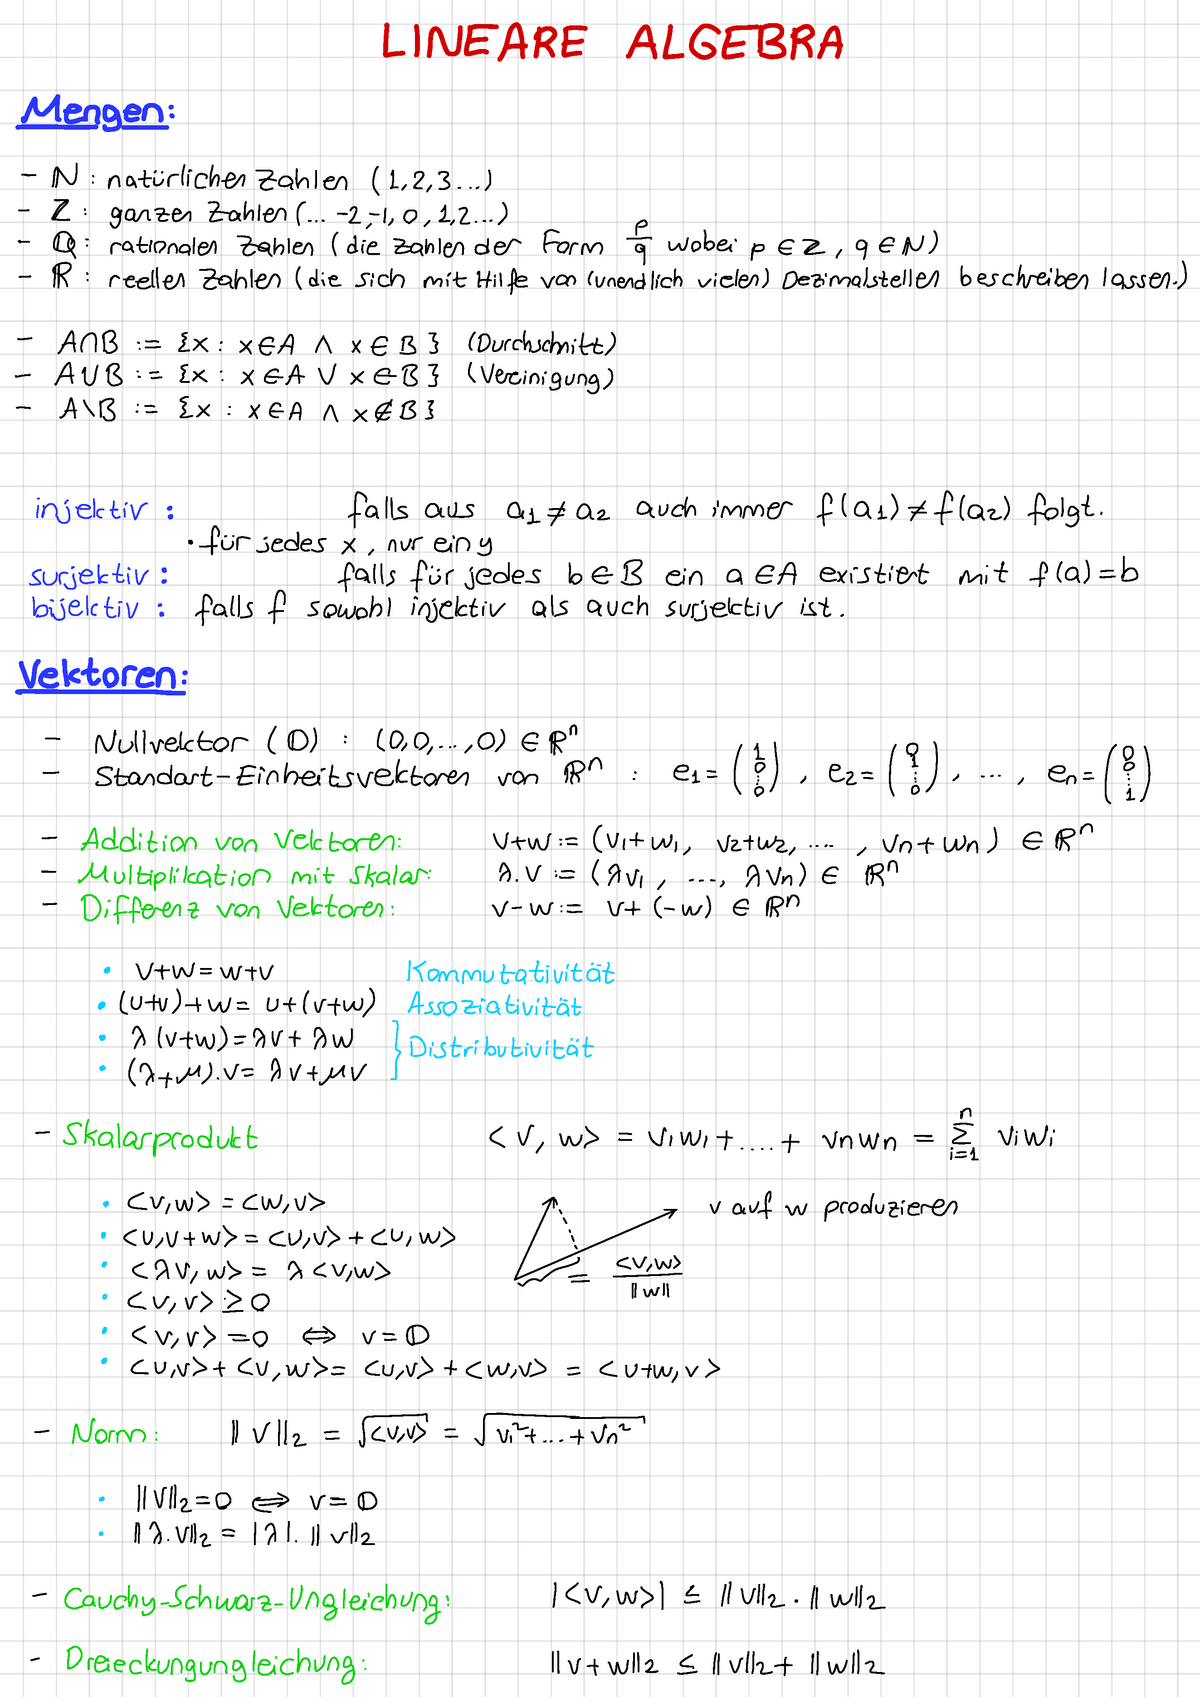 LINEARE ALGEBRA
Mengen:
- ℕ : natürlichen Zahlen (1,2,3...)
- ℤ : ganzen Zahlen (... -2,-1, 0, 1,2...)
- ℚ : rationalen Zahlen (die Zahlen der Form p/q wobei p ∈ ℤ, q ∈ ℕ)
- ℝ : reellen Zahlen (die sich mit Hilfe von (unendlich vielen) Dezimalstellen beschreiben lassen.)
- A∩B := {x : x∈A ∧ x∈B} (Durchschnitt)
- A∪B := {x : x∈A ∨ x∈B} (Vereinigung)
- A\B := {x : x∈A ∧ x∉B}
injektiv : falls aus a1 ≠ a2 auch immer f(a1) ≠ f(a2) folgt.
• für jedes x, nur ein y
surjektiv : falls für jedes b∈B ein a∈A existiert mit f(a)=b
bijektiv : falls f sowohl injektiv als auch surjektiv ist.
Vektoren:
- Nullvektor (𝕆) : (0,0,...,0) ∈ ℝⁿ
- Standart-Einheitsvektoren von ℝⁿ : e1 = (1 0 ⋮ 0), e2 = (0 1 ⋮ 0), ..., en = (0 0 ⋮ 1)
- Addition von Vektoren: v+w := (v1+w1, v2+w2, ...., vn+wn) ∈ ℝⁿ
- Multiplikation mit Skalar: λ.v := (λv1, ..., λvn) ∈ ℝⁿ
- Differenz von Vektoren: v-w := v+(-w) ∈ ℝⁿ
• v+w = w+v Kommutativität
• (u+v)+w = u+(v+w) Assoziativität
• λ(v+w) = λv + λw } Distributivität
• (λ+μ).v = λv+μv
- Skalarprodukt <v, w> = v1w1 + .... + vnwn = ∑ i=1 n viwi
• <v,w> = <w,v> v auf w produzieren
• <u,v+w> = <u,v> + <u,w>
• <λv,w> = λ<v,w> = <v,w> / ‖w‖
• <v,v> ≥ 0
• <v,v> = 0 ⇔ v = 𝕆
• <u,v> + <v,w> = <u,v> + <w,v> = <u+w,v>
- Norm: ‖v‖2 = √<v,v> = √v1²+...+vn²
• ‖v‖2 = 0 ⇔ v = 𝕆
• ‖λ.v‖2 = |λ|.‖v‖2
- Cauchy-Schwarz-Ungleichung: |<v,w>| ≤ ‖v‖2 . ‖w‖2
- Dreieckungungleichung: ‖v+w‖2 ≤ ‖v‖2 + ‖w‖2